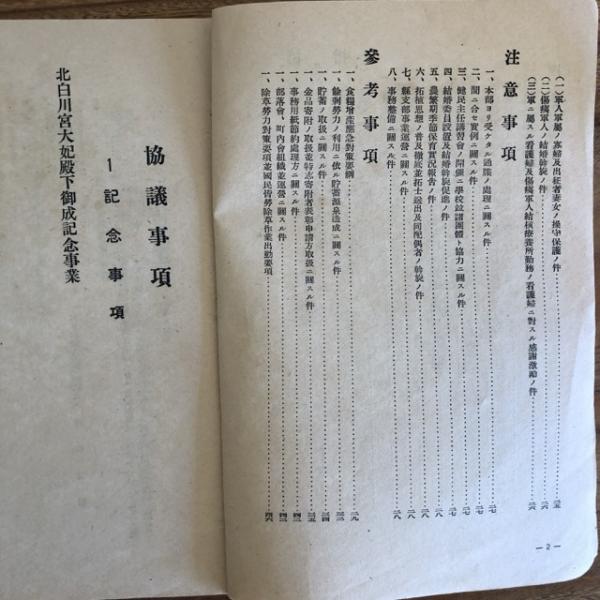 (一)軍人軍屬ノ寡婦及出征者妻女ノ操守保護ノ件……二五
(二)傷痍軍人ノ結婚斡旋ノ件……二六
(三)軍ニ屬スル看護婦及傷痍軍人結核療養所勤務ノ看護婦ニ對スル感謝激勵ノ件……二六
注意事項
一、本部ヨリ受ケタル通牒ノ處理ニ關スル件……二七
二、間ニ合セ實例ニ關スル件……二七
三、健民主任講習會ノ開催ニ學校竝諸團體ト協力ニ關スル件……二七
四、結婚委員設置及結婚斡旋促進ノ件……二七
五、農繁期季節保育實況報告ノ件……二八
六、拓植思想ノ普及徹底竝拓士送出及同配偶者ノ斡旋ノ件……二八
七、縣支部事業運營ニ關スル件……二八
八、事務整備ニ關スル件……二八
參考事項
一、食糧增産應急對策要綱……二九
一、餘剩勞力ノ利用ニ依ル貯蓄源泉造成ニ關スル件……三三
一、貯蓄ノ取扱ニ關スル件……三四
一、金品寄附ノ取扱竝特志寄附者表彰申請方取扱ニ關スル件……三五
一、事務用紙節約處理方ニ關スル件……四三
一、部落會、町內會組織竝運營ニ關スル件……四三
一、除草勞力對策要項竝國民皆勞除草作業出動要項……四六
—2—
協議事項
—記念事項
北白川宮大妃殿下御成記念事業